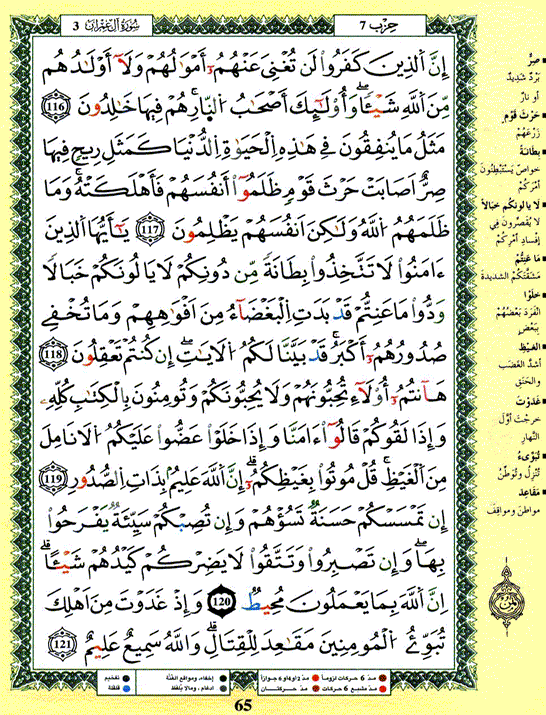 سُورَةُ آلِ عِمْرَان 3
حِزْب 7
إِنَّ اَلذِينَ كَفَرُواْ لَن تُغْنِيَ عَنْهُمُۥٓ أَمْوَٰلُهُمْ وَلَآ أَوْلَٰدُهُم
مِّنَ اَللَّهِ شَيْـًٔا وَأُوْلَٰٓئِكَ أَصْحَٰبُ اُلنّ۪ارِ هُمْ فِيهَا خَٰلِدُونَ 116
مَثَلُ مَا يُنفِقُونَ فِے هَٰذِهِ اِلْحَيَوٰةِ اِلدُّنْيَا كَمَثَلِ رِيحٍ فِيهَا
صِرٌّ اَصَابَتْ حَرْثَ قَوْمٖ ظَلَمُوٓاْ أَنفُسَهُمْ فَأَهْلَكَتْهُ وَمَا
ظَلَمَهُمُ اُللَّهُ وَلَٰكِنَ اَنفُسَهُمْ يَظْلِمُونَ 117 يَٰٓأَيُّهَا اَلذِينَ
ءَامَنُواْ لَا تَتَّخِذُواْ بِطَانَةٗ مِّن دُونِكُمْ لَا يَالُونَكُمْ خَبَالٗا
وَدُّواْ مَا عَنِتُّمْ قَدْ بَدَتِ اِلْبَغْضَآءُ مِنَ اَفْوَٰهِهِمْ وَمَا تُخْفِے
صُدُورُهُمُۥٓ أَكْبَرُ قَدْ بَيَّنَّا لَكُمُ اُلَايَٰتِ إِن كُنتُمْ تَعْقِلُونَ 118
هَٰٓانتُمُۥٓ أُوْلَآءِ تُحِبُّونَهُمْ وَلَا يُحِبُّونَكُمْ وَتُومِنُونَ بِالْكِتَٰبِ كُلِّهِۦ
وَإِذَا لَقُوكُمْ قَالُوٓاْ ءَامَنَّا وَإِذَا خَلَوْاْ عَضُّواْ عَلَيْكُمُ اُلَانَامِلَ
مِنَ اَلْغَيْظِ قُلْ مُوتُواْ بِغَيْظِكُمُۥٓ إِنَّ اَللَّهَ عَلِيمُۢ بِذَاتِ اِلصُّدُورِ 119
إِن تَمْسَسْكُمْ حَسَنَةٞ تَسُؤْهُمْ وَإِن تُصِبْكُمْ سَيِّئَةٞ يَفْرَحُواْ
بِهَا وَإِن تَصْبِرُواْ وَتَتَّقُواْ لَا يَضِرْكُمْ كَيْدُهُمْ شَيْـًٔا
اِنَّ اَللَّهَ بِمَا يَعْمَلُونَ مُحِيطٞ 120 وَإِذْ غَدَوْتَ مِنَ اَهْلِكَ
تُبَوِّئُ اُلْمُومِنِينَ مَقَٰعِدَ لِلْقِتَالِ وَاللَّهُ سَمِيعٌ عَلِيمٌ 121
صِرٌّ
بَرْدٌ شَدِيدٌ
أو نارٌ
حَرْثَ قَوْمٍ
زَرْعَهُمْ
بِطَانَةً
خواصّ يَسْتَبْطِنُونَ
أمْرَكُمْ
لا يالونكم خبالاً
لا يُقَصِّرُونَ فِي
إفْسادِ أمْرِكُمْ
ما عَنِتُّمْ
مَشَقَّتَكُمُ الشديدة
خَلَوْا
انْفَرَدَ بَعْضُهُمْ
بِبَعْضٍ
الغَيْظِ
أشدّ الغَضَبِ
والحَنَقِ
غَدَوْتَ
خرجْتَ أوّلَ
النَّهارِ
تُبَوِّئُ
تُنْزِلُ وتُوَطِّنُ
مَقَاعِدَ
مواطنَ ومواقِفَ
ثمن
مدّ 6 حركات لزوماً
مدّ 2 أو 4 أو 6 جوازاً
إخفاء، ومواقع الغُنَّة
تفخيم
مدّ مشبع 6 حركات
مدّ حركتان
ادغام، وما لا يُلفَظ
قلقلة
65